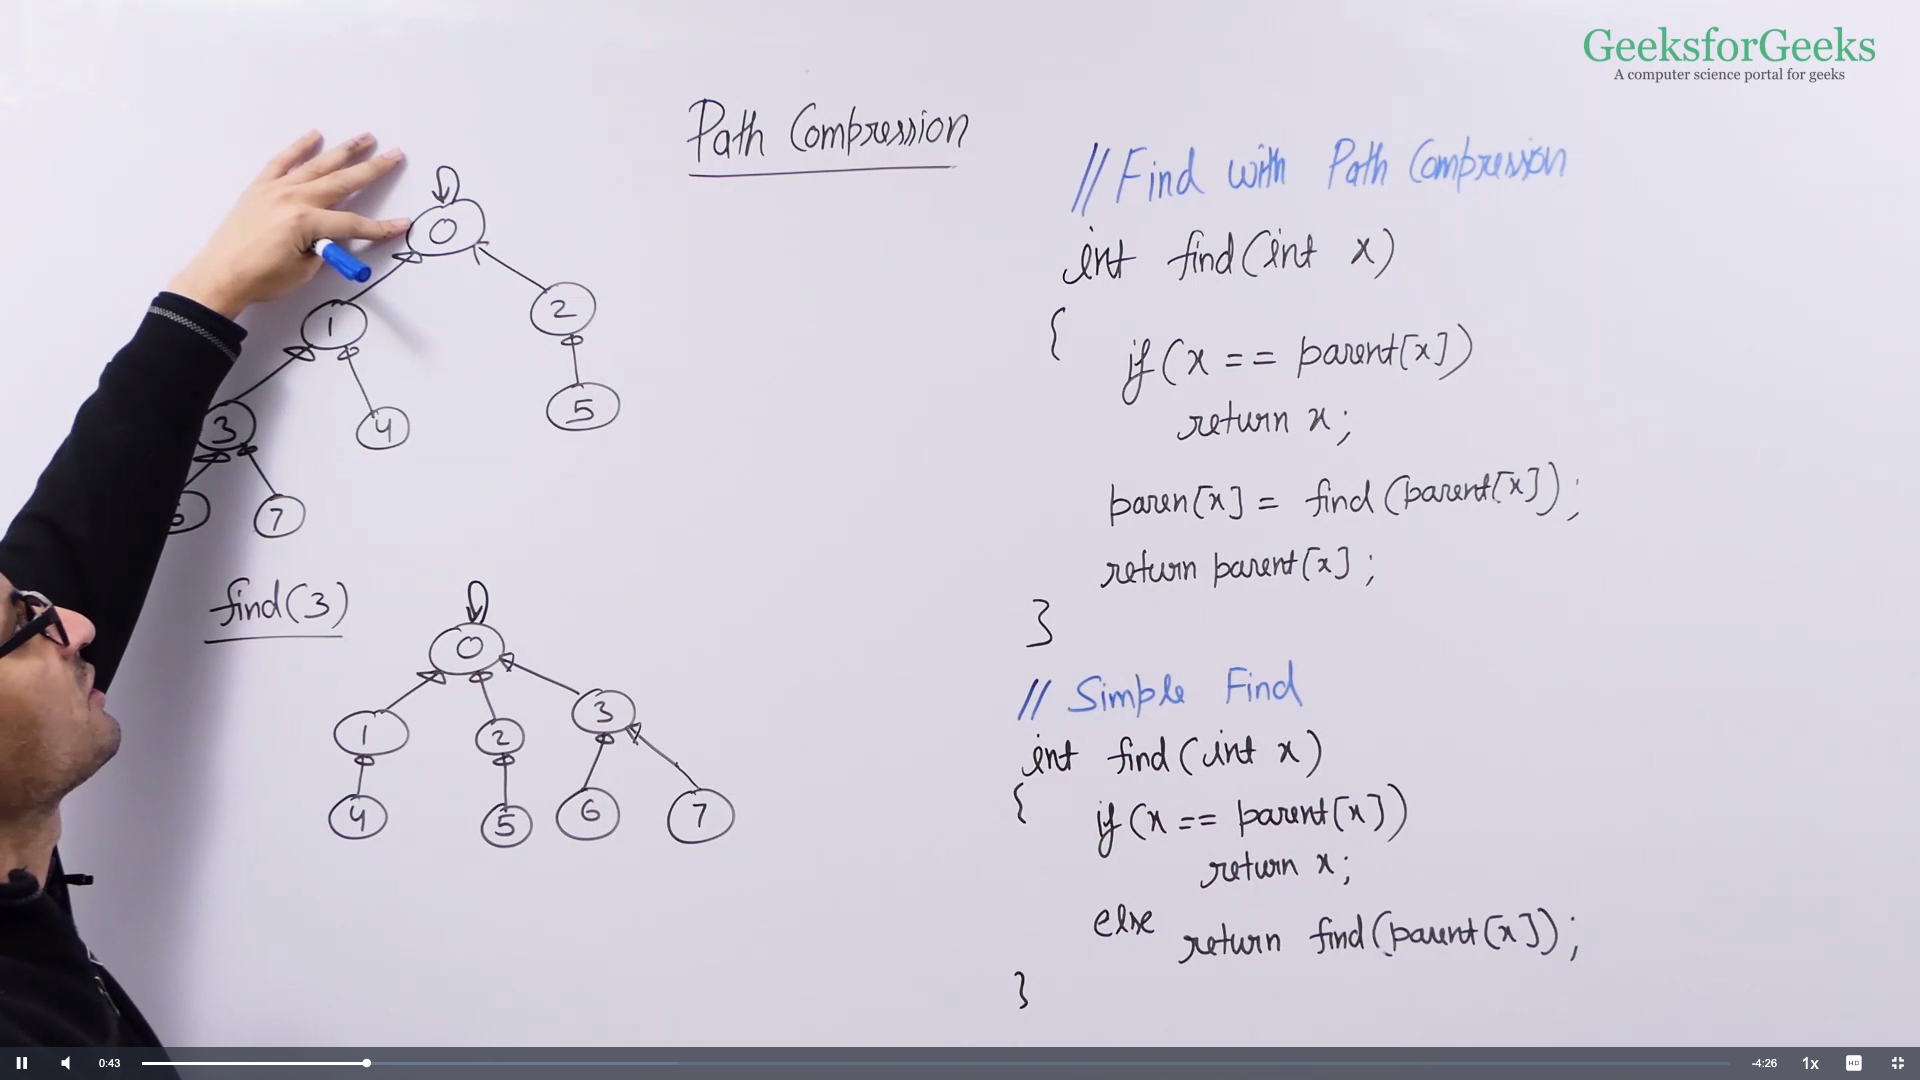 GeeksforGeeks
A computer science portal for geeks
Path Compression
0
1
2
3
4
5
7
find(3)
0
1
2
3
4
5
6
7
// Find with Path Compression
int find(int x)
{
if(x == parent[x])
return x;
paren[x] = find(parent[x]);
return parent[x];
}
// Simple Find
int find(int x)
{
if(x == parent[x])
return x;
else return find(parent[x]);
}
0:43
-4:26
1x
HD